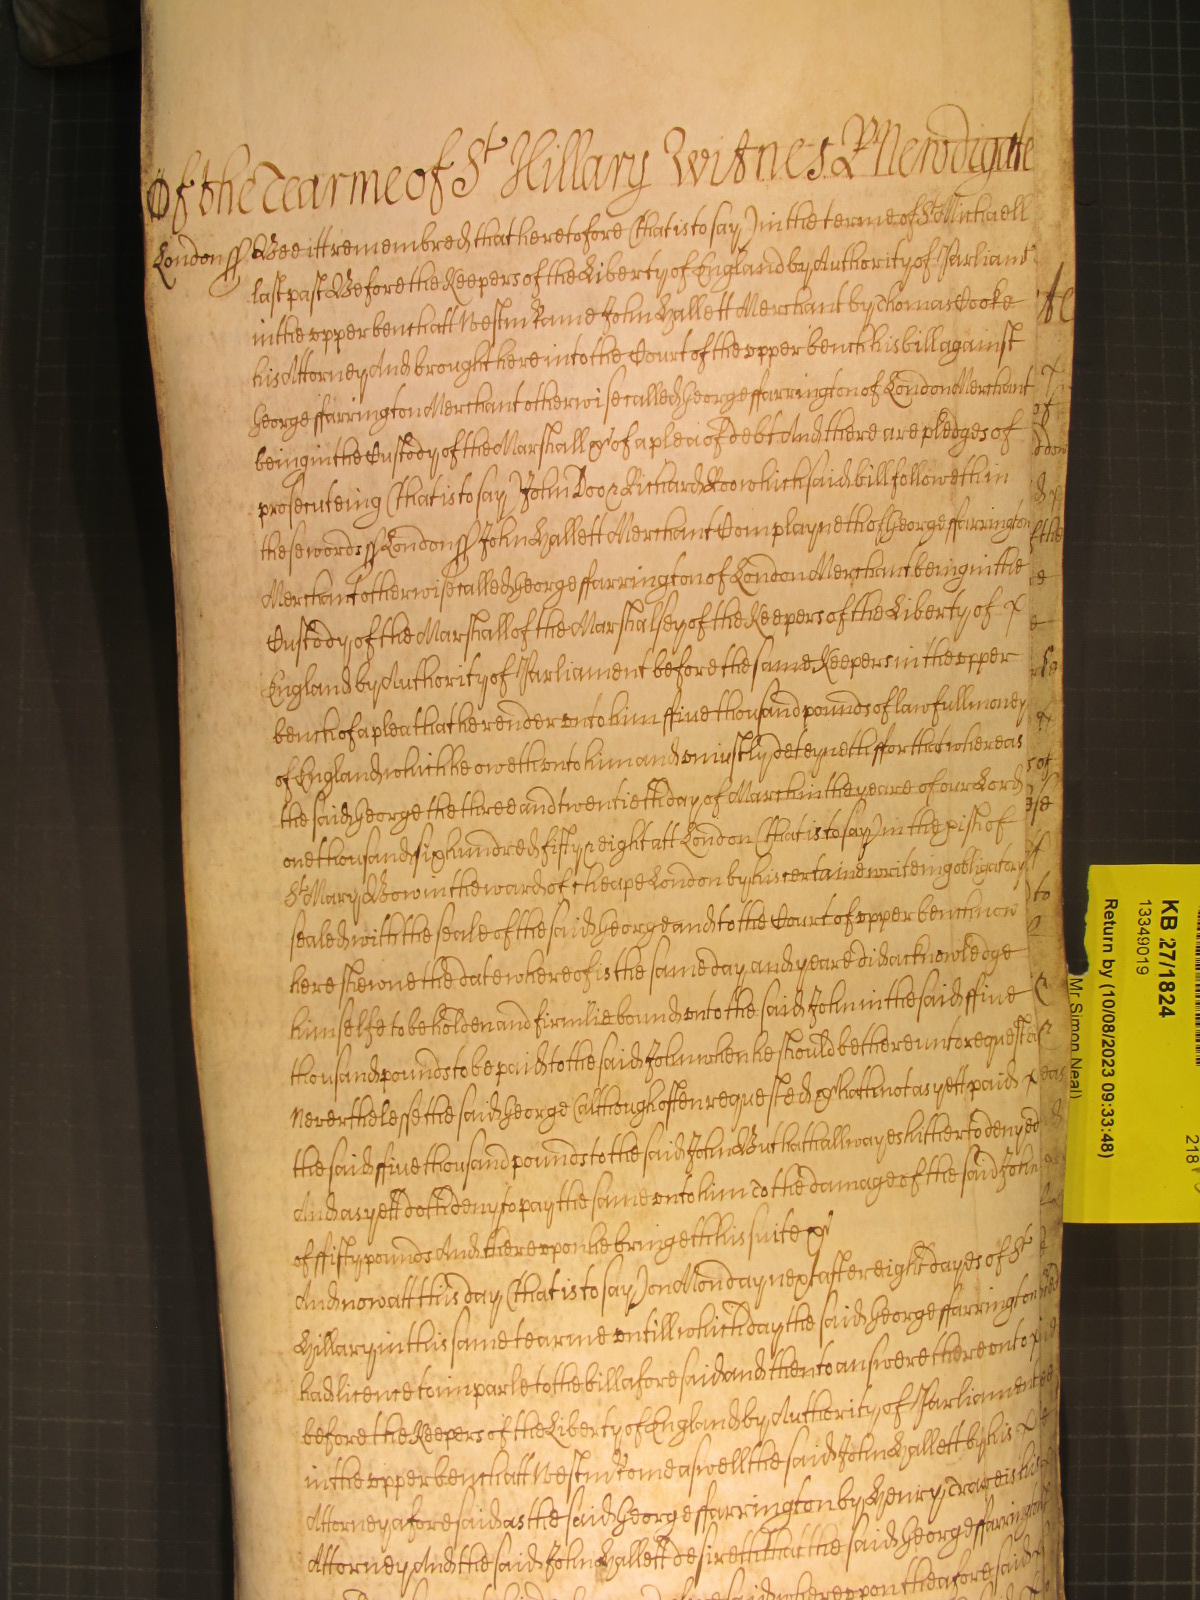 Of the Tearme of St Hillary Witnes R Newdigate
London ss Bee itt remembred that heretofore (that is to say) in the terme of St Michaell
last past Before the Keepers of the Liberty of England by Authority of Parliamt
in the upper bench att Westm Came John Hallett Merchant by Thomas Cooke
his Attorney And brought here into the Court of the upper bench his bill against
George ffarrington Merchant otherwise called George ffarrington of London Merchant
being in the Custody of the Marshall &c of a plea of debt And there are pledges of
prosecuteing (that is to say) John Doo & Richard Roo which said bill followeth in
these words ss London ss John Hallett Merchant Complayneth of George ffarrington
Merchant otherwise called George ffarrington of London Merchant being in the
Custody of the Marshall of the Marshalsey of the Keepers of the Liberty of
England by Authority of Parliament before the same Keepers in the upper
bench of a plea that he render unto him ffive thousand pounds of lawfull money
of England which he oweth unto him and uniustly deteyneth ffor that whereas
the said George the three and twentieth day of March in the yeare of our Lord
one thousand six hundred fifty & eight att London (that is to say) in the pish of
St Mary Bow in the ward of Cheape London by his certaine writeing obligatory
sealed with the seale of the said George and to the Court of upper bench now
here shewne the date whereof is the same day and yeare did acknowledge
himselfe to be holden and firmlie bound unto the said John in the said ffive
thousand pounds to be paid to the said John when he should be thereunto requested
Neverthelesse the said George (although often requested &c) hath not as yett paid
the said ffive thousand pounds to the said John But hath allwayes hitherto denyed
And as yett doth deny to pay the same unto him To the damage of the said John
of ffifty pounds And thereupon he bringeth his suite &c
And now att this day (that is to say) on Monday next after eight dayes of St
Hillary in this same tearme untill which day the said George ffarrington
had licence to imparle to the bill aforesaid and then to answere thereunto
before the Keepers of the Liberty of England by Authority of Parliament
in the upper bench att Westm Come aswell the said John Hallett by his
Attorney aforesaid as the said George ffarrington by Henry Trowe his
Attorney And the said John Hallett desireth that the said George ffarrington
said whereuppon the aforesaid
KB 27/1824
13349019
Return by (10/08/2023 09:33:48)
Mr Simon Neal)
218